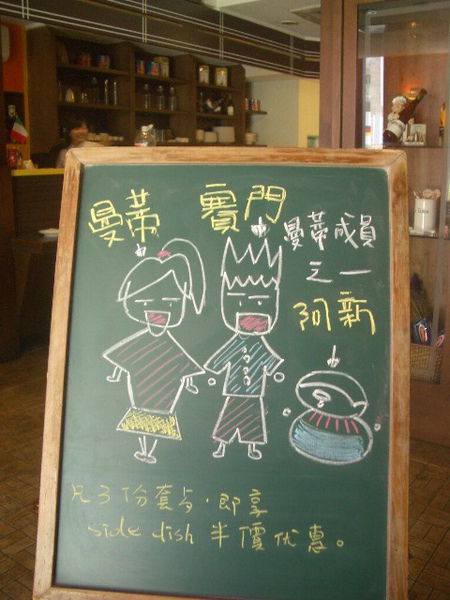 曼蒂 賽門
曼蒂成員
之一
阿新
凡3份套歺．即享
side dish 半價优惠。